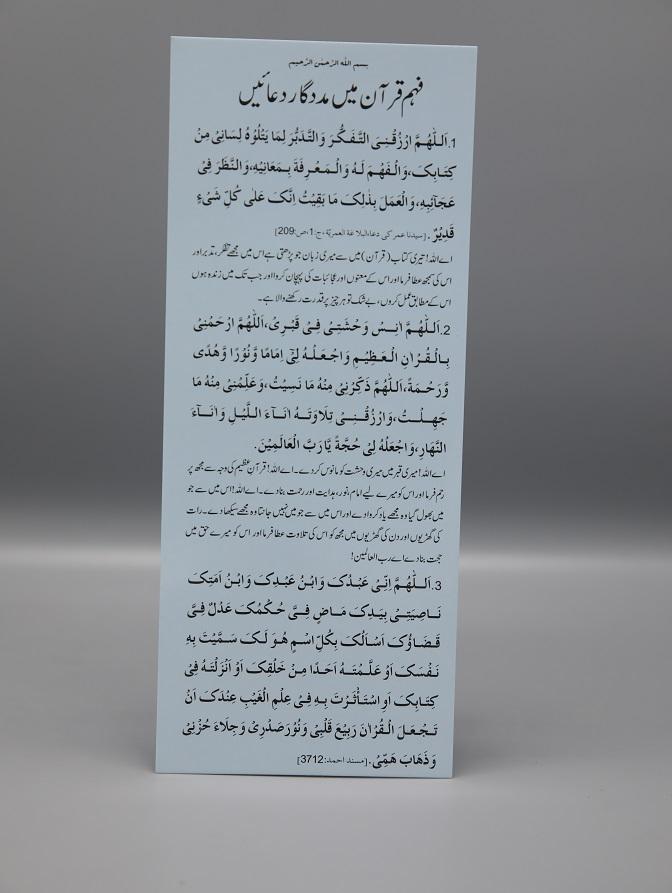 بسم الله الرحمن الرحیم
فہم قرآن میں مددگار دعائیں
1.اَللّٰهُمَّ ارْزُقْنِیَ التَّفَکُّرَ وَالتَّدَبُّرَ لِمَا یَتْلُوْهُ لِسَانِیْ مِنْ
کِتَابِکَ،وَالْفَهْمَ لَهُ وَالْمَعْرِفَةَ بِمَعَانِیْهِ،وَالنَّظَرَ فِیْ
عَجَآئِبِهِ،وَالْعَمَلَ بِذٰلِکَ مَا بَقِیْتُ اِنَّکَ عَلٰی کُلِّ شَیْءٍ
قَدِیْرٌ.[سیدنا عمر کی دعا،البلاغة العمریّة،ج:1،ص:209]
اے اللہ! تیری کتاب (قرآن) میں سے میری زبان جو پڑھتی ہے اس میں مجھے تفکر، تدبر اور
اس کی سمجھ عطا فرما اور اس کے معنوں اور عجائبات کی پہچان کروا اور جب تک میں زندہ ہوں
اس کے مطابق عمل کروں، بے شک تو ہر چیز پر قدرت رکھنے والا ہے۔
2.اَللّٰهُمَّ اٰنِسْ وَحْشَتِیْ فِیْ قَبْرِیْ،اَللّٰهُمَّ ارْحَمْنِیْ
بِالْقُرْاٰنِ الْعَظِیْمِ وَاجْعَلْهُ لِیْٓ اِمَامًا وَّنُوْرًا وَّهُدًی
وَّرَحْمَةً،اَللّٰهُمَّ ذَکِّرْنِیْ مِنْهُ مَا نَسِیْتُ،وَعَلِّمْنِیْ مِنْهُ مَا
جَهِلْتُ،وَارْزُقْنِیْ تِلَاوَتَهُ اٰنَآءَ اللَّیْلِ وَاٰنَآءَ
النَّهَارِ،وَاجْعَلْهُ لِیْ حُجَّةً یَّارَبَّ الْعَالَمِیْنَ.
اے اللہ! میری قبر میں میری وحشت کو مانوس کردے۔ اے اللہ! قرآن عظیم کی وجہ سے مجھ پر
رحم فرما اور اس کو میرے لیے امام، نور، ہدایت اور رحمت بنادے۔ اے اللہ! اس میں سے جو
میں بھول گیا وہ مجھے یاد کروا دے اور اس میں سے جو میں نہیں جانتا وہ مجھے سیکھا دے۔ رات
کی گھڑیوں اور دن کی گھڑیوں میں مجھ کو اس کی تلاوت عطا فرما اور اس کو میرے حق میں
حجت بنادے اے رب العالمین!
3.اَللّٰهُمَّ اِنِّیْ عَبْدُکَ وَابْنُ عَبْدِکَ وَابْنُ اَمَتِکَ
نَاصِیَتِیْ بِیَدِکَ مَاضٍ فِیَّ حُکْمُکَ عَدْلٌ فِیَّ
قَضَاؤُکَ اَسْاَلُکَ بِکُلِّ اسْمٍ هُوَ لَکَ سَمَّیْتَ بِهِ
نَفْسَکَ اَوْ عَلَّمْتَهُ اَحَدًا مِنْ خَلْقِکَ اَوْ اَنْزَلْتَهُ فِیْ
کِتَابِکَ اَوِ اسْتَأْثَرْتَ بِهِ فِیْ عِلْمِ الْغَیْبِ عِنْدَکَ اَنْ
تَجْعَلَ الْقُرْاٰنَ رَبِیْعَ قَلْبِیْ وَنُوْرَ صَدْرِیْ وَجِلَاءَ حُزْنِیْ
وَذَهَابَ هَمِّیْ.[مسند احمد:3712]